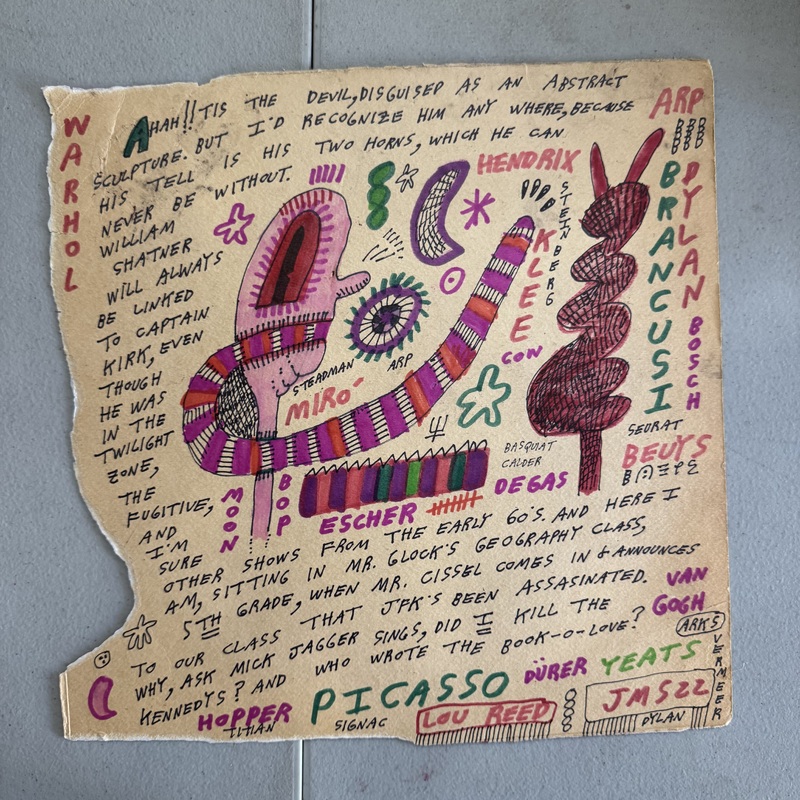 AHAH!! TIS THE DEVIL, DISGUISED AS AN ABSTRACT
SCULPTURE. BUT I'D RECOGNIZE HIM ANY WHERE, BECAUSE
HIS TELL IS HIS TWO HORNS, WHICH HE CAN
NEVER BE WITHOUT.
WILLIAM
SHATNER
WILL ALWAYS
BE LINKED
TO CAPTAIN
KIRK, EVEN
THOUGH
HE WAS
IN THE
TWILIGHT
ZONE,
THE
FUGITIVE,
AND
I'M
SURE
OTHER SHOWS FROM THE EARLY 60'S. AND HERE I
AM, SITTING IN MR. GLOCK'S GEOGRAPHY CLASS,
5TH GRADE, WHEN MR. CISSEL COMES IN & ANNOUNCES
TO OUR CLASS THAT JFK'S BEEN ASSASINATED.
WHY, ASK MICK JAGGER SINGS, DID I KILL THE
KENNEDYS? AND WHO WROTE THE BOOK-O-LOVE?
WARHOL
ARP
HENDRIX
STEINBERG
KLEE
BRANCUSI
DYLAN
BOSCH
COW
STEADMAN
ARP
MIRO´
SEURAT
BEUYS
BASQUIAT
CALDER
DEGAS
ESCHER
MOON
BOP
VAN
GOGH
ARKS
VERMEER
YEATS
DÜRER
PICASSO
HOPPER
TITIAN
SIGNAC
LOU REED
JMS22
DYLAN